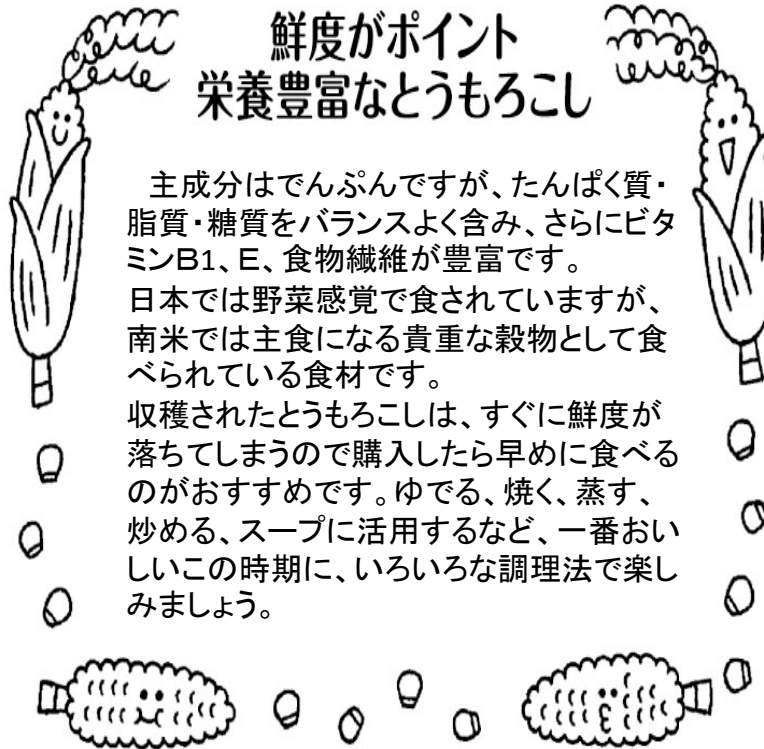 鮮度がポイント
栄養豊富なとうもろこし
主成分はでんぷんですが、たんぱく質・
脂質・糖質をバランスよく含み、さらにビタ
ミンＢ1、Ｅ、食物繊維が豊富です。
日本では野菜感覚で食されていますが、
南米では主食になる貴重な穀物として食
べられている食材です。
収穫されたとうもろこしは、すぐに鮮度が
落ちてしまうので購入したら早めに食べる
のがおすすめです。ゆでる、焼く、蒸す、
炒める、スープに活用するなど、一番おい
しいこの時期に、いろいろな調理法で楽し
みましょう。